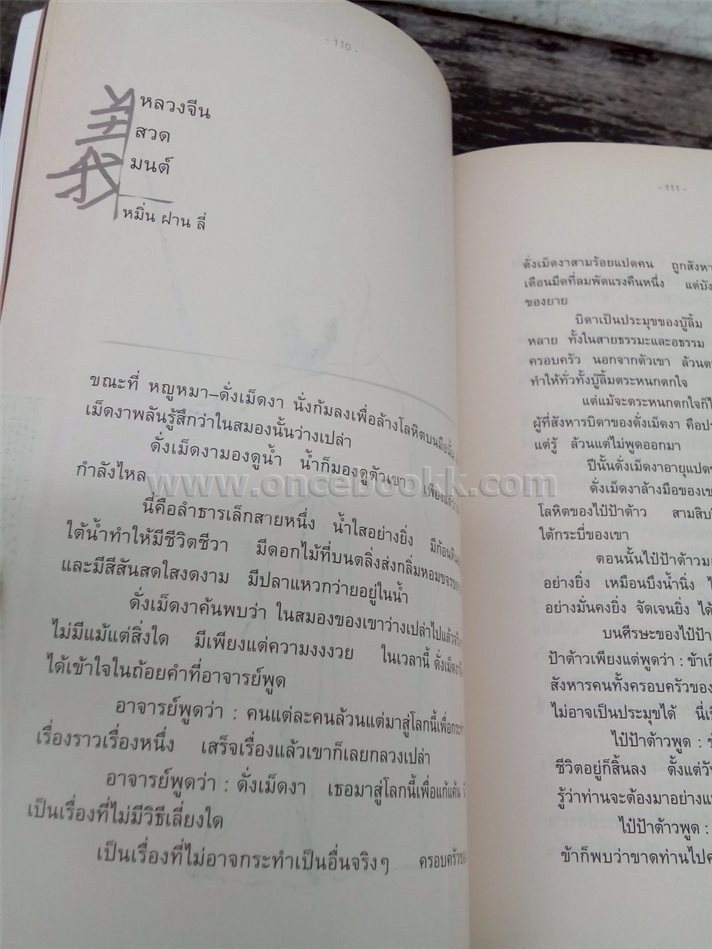 - 110 -
義
หลวงจีน
สวด
มนต์
หมิ่น ฝาน ลี่
ขณะที่ หญูหมา–ดั่งเม็ดงา นั่งก้มลงเพื่อล้างโลหิตบนมือนั้น
เม็ดงาพลันรู้สึกว่าในสมองนั้นว่างเปล่า
ดั่งเม็ดงามองดูน้ำ น้ำก็มองดูตัวเขา เพียงแต่
กำลังไหล
นี่คือลำธารเล็กสายหนึ่ง น้ำใสอย่างยิ่ง มีก้อนหิน
ใต้น้ำทำให้มีชีวิตชีวา มีดอกไม้ที่บนตลิ่งส่งกลิ่มหอมขจร
และมีสีสันสดใสงดงาม มีปลาแหวกว่ายอยู่ในน้ำ
ดั่งเม็ดงาค้นพบว่า ในสมองของเขาว่างเปล่าไปแล้ว
ไม่มีแม้แต่สิ่งใด มีเพียงแต่ความงงงวย ในเวลานี้ ดั่งเม็ดงา
ได้เข้าใจในถ้อยคำที่อาจารย์พูด
อาจารย์พูดว่า : คนแต่ละคนล้วนแต่มาสู่โลกนี้เพื่อกระทำ
เรื่องราวเรื่องหนึ่ง เสร็จเรื่องแล้วเขาก็เลยกลวงเปล่า
อาจารย์พูดว่า : ดั่งเม็ดงา เธอมาสู่โลกนี้เพื่อแก้แค้น
เป็นเรื่องที่ไม่มีวิธีเลี่ยงใด
เป็นเรื่องที่ไม่อาจกระทำเป็นอื่นจริงๆ ครอบครัว
www.oncebookk.com
- 111 -
ดั่งเม็ดงาสามร้อยแปดคน ถูกสังหา
เดือนมืดที่ลมพัดแรงคืนหนึ่ง แต่บัง
ของยาย
บิดาเป็นประมุขของบู๊ลิ้ม
หลาย ทั้งในสายธรรมะและอธรรม
ครอบครัว นอกจากตัวเขา ล้วนต
ทำให้ทั่วทั้งบู๊ลิ้มตระหนกตกใจ
แต่แม้จะตระหนกตกใจก็ไ
ผู้ที่สังหารบิดาของดั่งเม็ดงา คือป
แต่รู้ ล้วนแต่ไม่พูดออกมา
ปีนั้นดั่งเม็ดงาอายุแปด
ดั่งเม็ดงาล้างมือของเข
โลหิตของไป๋ป้าต้าว สามสิบ
ใต้กระบี่ของเขา
ตอนนั้นไป๋ป้าต้าวม
อย่างยิ่ง เหมือนบึงน้ำนิ่ง ไ
อย่างมั่นคงยิ่ง จัดเจนยิ่ง ได้
บนศีรษะของไป๋ป้า
ป้าต้าวเพียงแต่พูดว่า : ข้าเกิ
สังหารคนทั้งครอบครัวของ
ไม่อาจเป็นประมุขได้ นี่เป็
ไป๋ป้าต้าวพูด : ข้
ชีวิตอยู่ก็สิ้นลง ตั้งแต่วั
รู้ว่าท่านจะต้องมาอย่างแ
ไป๋ป้าต้าวพูด :
ข้าก็พบว่าขาดท่านไปค